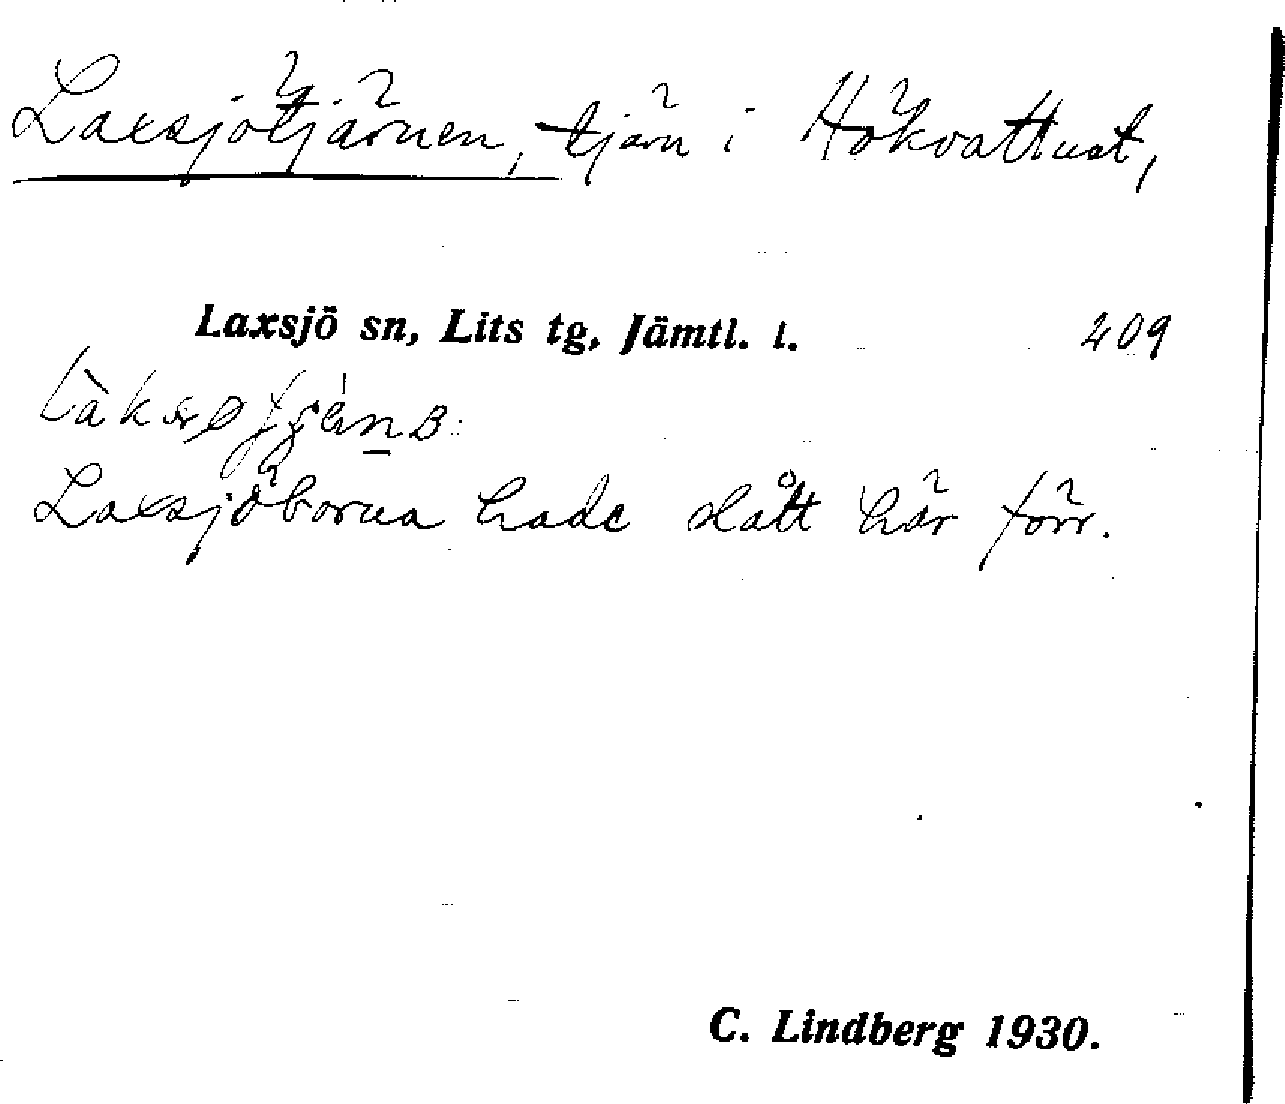 Laxsjötjärnen, tjärn i Hökvattnet,
Laxsjö sn, Lits tg, Jämtl. l. 209
Laxsjöborna hade slått här förr.
C. Lindberg 1930.